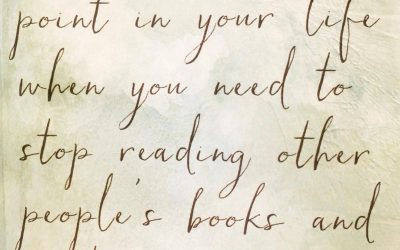 point in your life
when you need to
stop reading other
people's books and